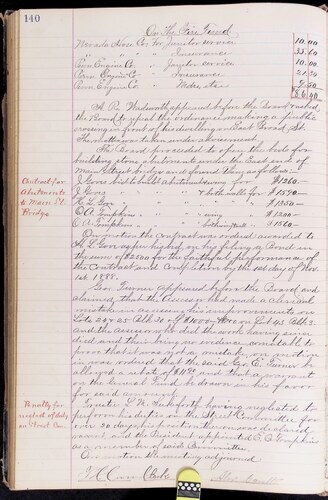 140
On The Fire Fund,
Nevada Hose Co. For Janitor service, 10.00
" " " " Insurance 33.60
Penn Engine Co. " Janitor service. 10.00
Penn Engine Co " Insurance
Penn Engine Co " Water, etc
A. R. Wadsworth appeared before the Board & asked
the Board to repeal the ordinance making a public
crossing in front of his dwelling on East Broad St.
The matter was taken under advisement.
The Board proceeded to open the bids for
building stone abutments under the East end of
Main Street bridge and found them as follows:-
Contract for
Abutments
to Main St.
Bridge
J. Gors bid to build abutments wing for $1260.-
J. Gors " " " " & both walls for $1590.-
H. L. Gor " " " $1350-
C. A. Tompkins " " " wing " $1200-
C. A. Tompkins " " " " $1560-
On motion the contract was ordered awarded to
H. L. Gor as per his bid, on his filing a Bond in
the sum of $2000 for the faithful performance of
the Contract and Completion by the 1st day of Nov.
1st 1888.
Geo. Turner appeared before the Board and
claimed that the Assessor had made a clerical
mistake in assessing his improvements on
and the Assessor who did the work having since
died and their being no evidence obtainable to
prove that it was not a mistake, on motion
it was ordered that the said Geo. E. Turner be
allowed a rebate of and that a warrant
on the General Fund be drawn in his favor
for said amount.
Penalty for
neglect of duty
on Street Com.
Trustee having neglected to
perform his duties on the Street Committee for
over 20 days, his position thereon was declared
vacant and the President appointed C. A. Tompkins
as a member of said Committee.
On motion the meeting adjourned.
Clerk